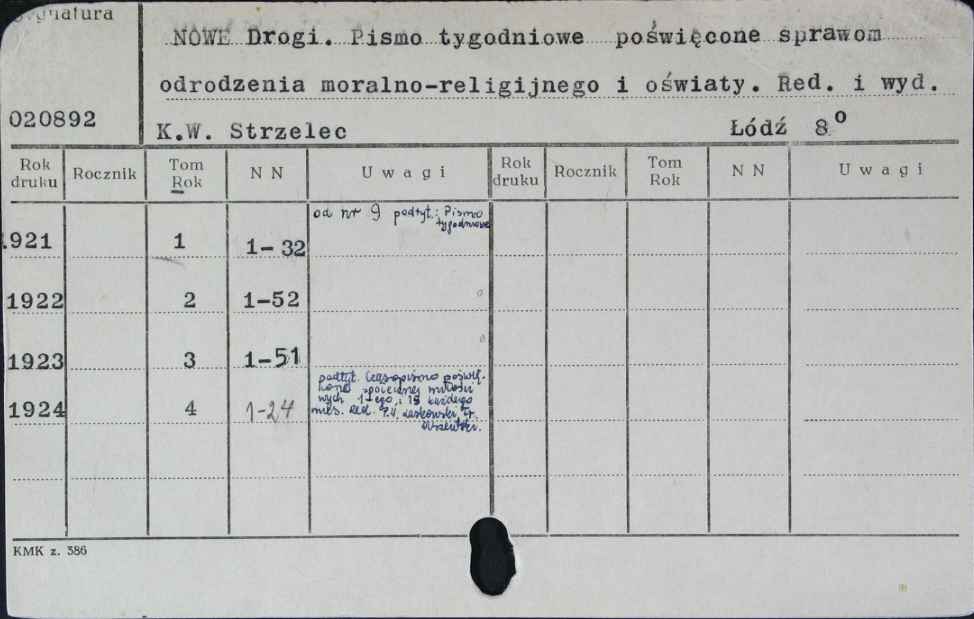 Sygnatura
NOWE Drogi. Pismo tygodniowe poświęcone sprawom
odrodzenia moralno-religijnego i oświaty. Red. i wyd.
020892 K.W. Strzelec Łódź 8º
Rok druku Rocznik Tom Rok N N Uwagi Rok druku Rocznik Tom Rok N N Uwagi
od nr 9 podtyt.: Pismo
tygodniowe
1921 1 1-32
1922 2 1-52
1923 3 1-51
podtyt. Czasopismo poświę-
cone społecznej
1924 4 1-24
wych 1-ego i 15 każdego
mies. Red. Laskowski,
KMK z. 386